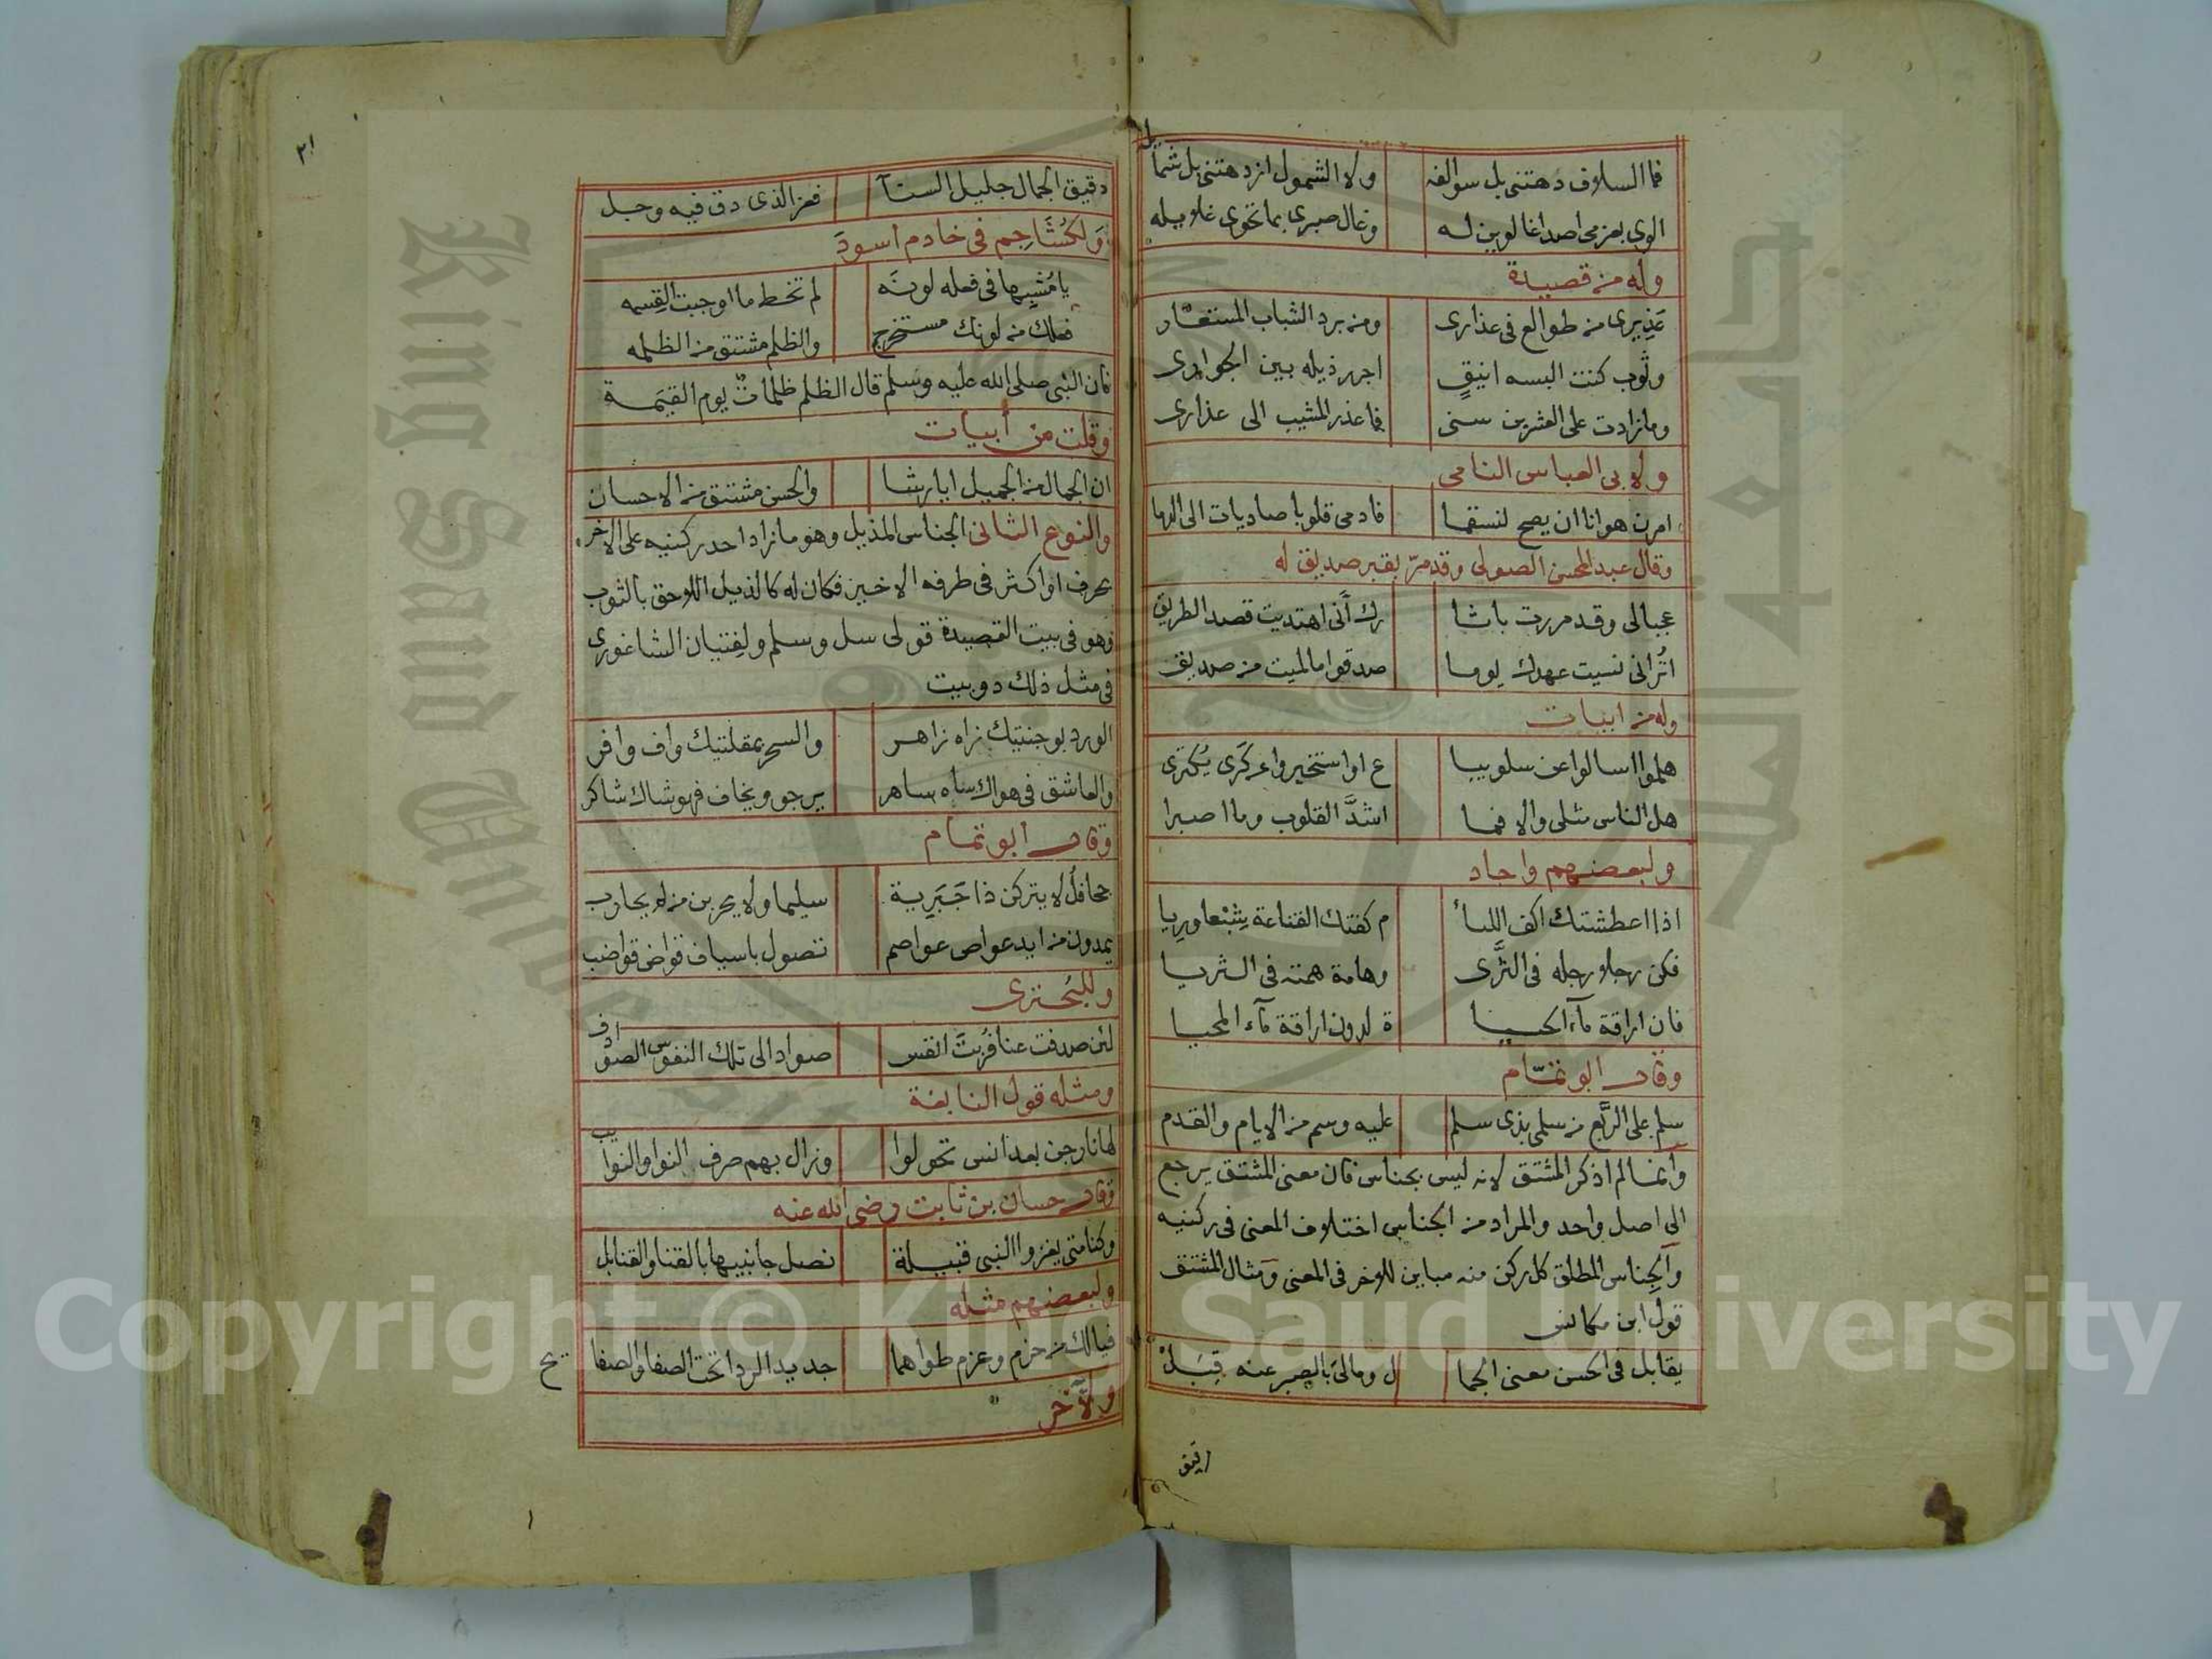 فما السلاف دهتني بل سوالفه ولا الشمول ازدهتني بل شمائله
الوى بعزمي اصداغا لوين له وغال صبري بما تحوى غلايله
وله من قصيدة
عَذيري من طوالع في عذارى ومن برد الشباب المستعار
وثوب كنت البسه انيقٍ اجرر ذيله بين الجوارى
وما زادت على العشرين سنى فما عذر المشيب الى عذارى
ولابى العباس النامى
امرن هوانا ان يصح لنسقما فادمى قلوبا صاديات الى الدما
وقال عبد المحسن الصولى وقد مرّ بقبر صديق له
عجبا لى وقد مررت باثا رك أنى اهتديت قصد الطريق
اتُرانى نسيت عهدك يوما صدقوا ما لميت من صديق
وله من ابيات
هلموا اسالوا عن سلوى يبا ع او استخبروا عن كَرَى يُكترى
هل الناس مثلى والا فما اشدَّ القلوب وما اصبرا
ولبعضهم واجاد
اذا اعطشتك اكف اللئا م كفتك القناعة شِبْعا وريا
فكن رجلا رجله في الثَّرى وهامة همته في الثريا
فان اراقة مآء الحيا ة لدون اراقة مآء المحيا
وقال ابو تمّام
سلم على الرَّبع من سلمى بذى سلم عليه وسم من الايام والقدم
وانما لم اذكر المشتق لانه ليس بجناس فان معنى المشتق يرجع
الى اصل واحد والمراد من الجناس اختلاف المعنى في ركنيه
والجناس المطلق كل ركن منه مباين للاخر في المعنى ومثال المشتق
قول ابن مكانس
يقابل في الحسن معنى الجما ل ومالى بالصبر عنه قِبَلْ
دقيق
٢١
دقيق الجمال جليل السنآ فعز الذى دق فيه وجل
ولكُشَاجِم في خادم اسودَ
يا مُشبِها في فعله لونَه لم تخط ما اوجبت القِسمه
فعلك من لونك مستخرج والظلم مشتق من الظلمه
فان النبى صلى الله عليه وسلم قال الظلم ظلماتٌ يوم القيمة
وقلت من أبيات
ان الجمال من الجميل ايا رشا والحسن مشتق من الاحسان
والنوع الثانى الجناس المذيل وهو ما زاد احد ركنيه على الاخر
بحرف او اكثر في طرفه الاخير فكان له كالذيل اللاحق بالثوب
وهو في بيت القصيدة قولى سل وسلم ولفِتيان الشاغورى
في مثل ذلك دوبيت
الورد بوجنتيك زاه زاهر والسحر بمقلتيك واف وافر
والعاشق في هواك ساه ساهر يرجو ويخاف فهو شاك شاكر
وقال ابو تمام
جحافلُ لا يتركن ذا جَبَرِية سليما ولا يحربن من لم يحارب
يمدون من ايد عواص عواصم تصول باسياف قواض قواضب
وللبُحترى
لئن صدفت عنا فرُبَّت انفس صواد الى تلك النفوس الصوادف
ومثله قول النابغة
لها نار جن بعد انس تحولوا وزال بهم صرف النوا والنوايب
وقال حسان بن ثابت رضي الله عنه
وكنا متى يغزوا النبى قبيلة نصل جانبيها بالقنا والقنابل
ولبعضهم مثله
فيا لك من حزم وعزم طواهما جديد الردا تحت الصفا والصفايح
ولآخر